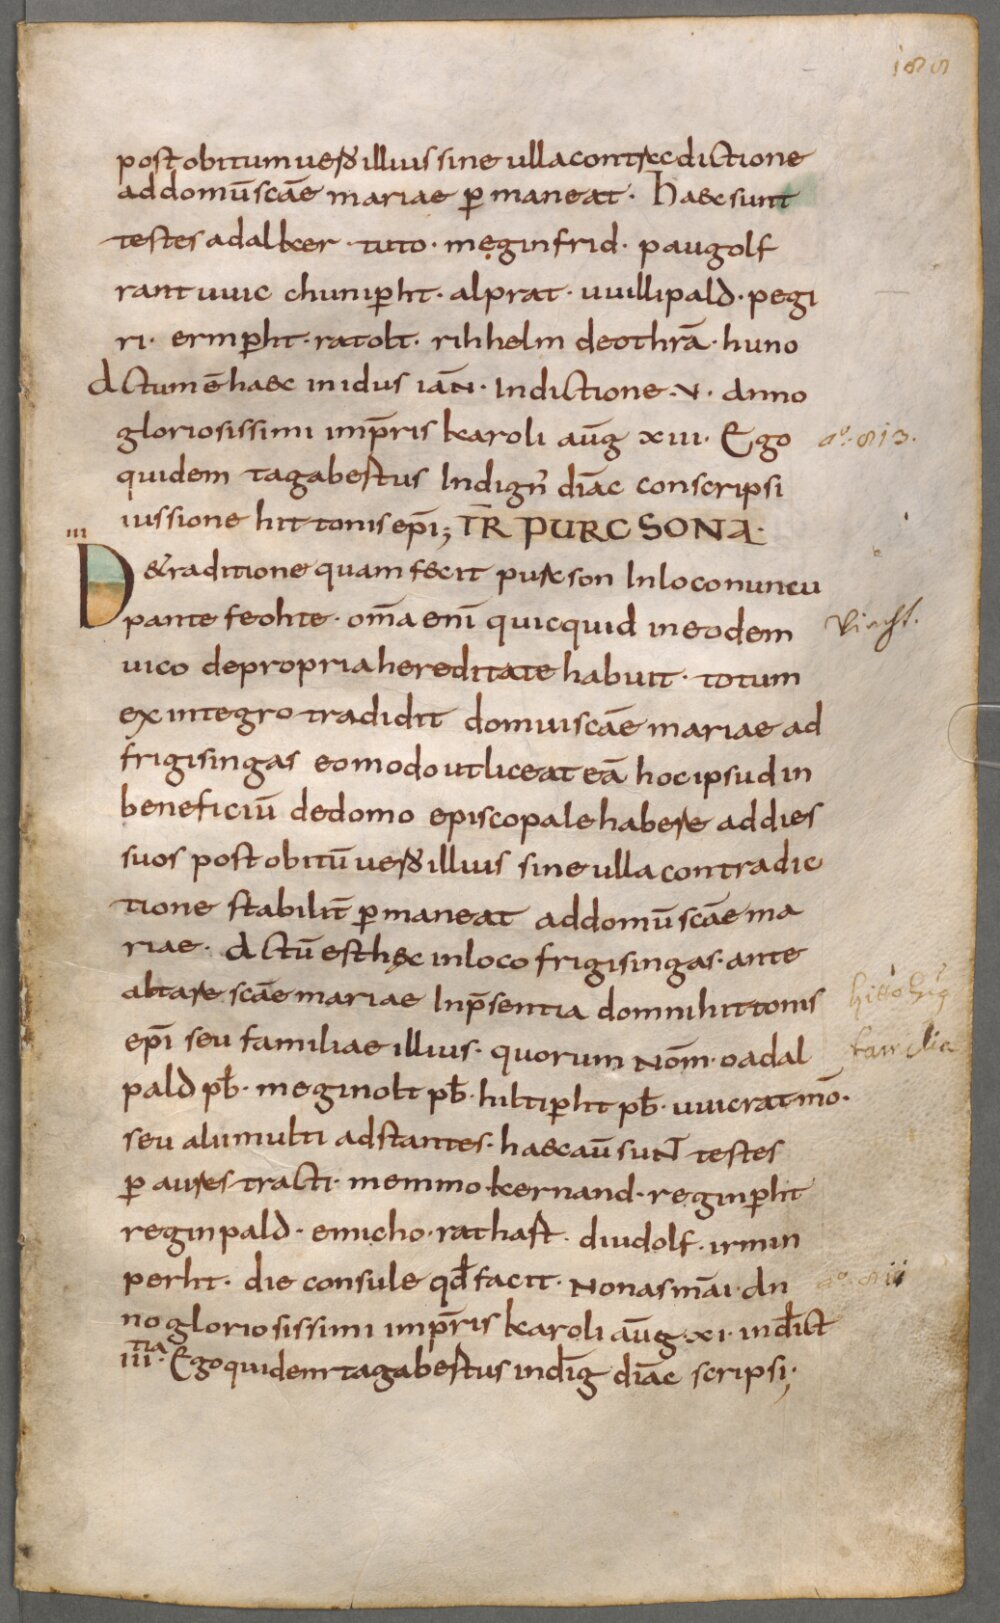 188
post obitum uero illius sine ulla contradictione
ad domū scāe mariae p maneat · haec sunt
testes adalker · tuto · meginfrid · paugolf
rantuuic chunipht · alprat · uuillipald · pegi
ri · ermpht · ratolt · rihhelm deothrā · huno
Actum ē haec in idus iaN̄ · Indictione · V · Anno
gloriosissimi imp̄ris karoli aūg xiii · Ego
aº · 813 ·
quidem tagabertus Indign̄ diāc conscripsi
iussione hittonis ep̄i; TR̄ PURCSONA ·
III
De traditione quam fecit purcson In loco nuncu
pante feohte · om̄a enī quicquid in eodem
Viecht.
uico de propria hereditate habuit · totum
ex integro tradidit domui scāe mariae ad
frigisingas eo modo ut liceat eā hoc ipsud in
beneficiū de domo episcopale habere ad dies
suos post obitū uero illius sine ulla contradic
tione stabilit̄ p maneat ad domū scāe ma
riae · Actū est hęc in loco frigisingas · ante
altare scāe mariae In p̄sentia domni hittonis
ep̄i seu familiae illius · quorum Nom̄ · oadal
familia
pald pb̄ · meginolt pb̄ · hiltipht pb̄ · uuicrat mō ·
seu alii multi adstantes · haec aū suNT testes
p aures tracti · memmo · kernand · reginpht
reginpald · emicho · rathart · diudolf · irmin
perht · die consule qđ facit · Nonas māi · An
aº · 811
no gloriosissimi imp̄ris karoli aūg · xi · indict̄
iiii tia · Ego quidem tagabertus indiḡ diāc scripsi ·;